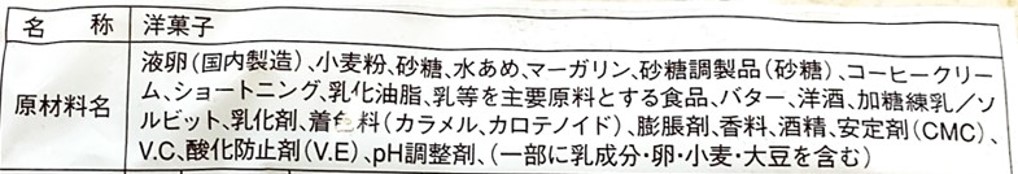 名 称 洋菓子
原材料名
液卵(国内製造)、小麦粉、砂糖、水あめ、マーガリン、砂糖調製品(砂糖)、コーヒークリー
ム、ショートニング、乳化油脂、乳等を主要原料とする食品、バター、洋酒、加糖練乳/ソ
ルビット、乳化剤、着色料(カラメル、カロテノイド)、膨脹剤、香料、酒精、安定剤(CMC)、
V.C、酸化防止剤(V.E)、pH調整剤、(一部に乳成分・卵・小麦・大豆を含む)